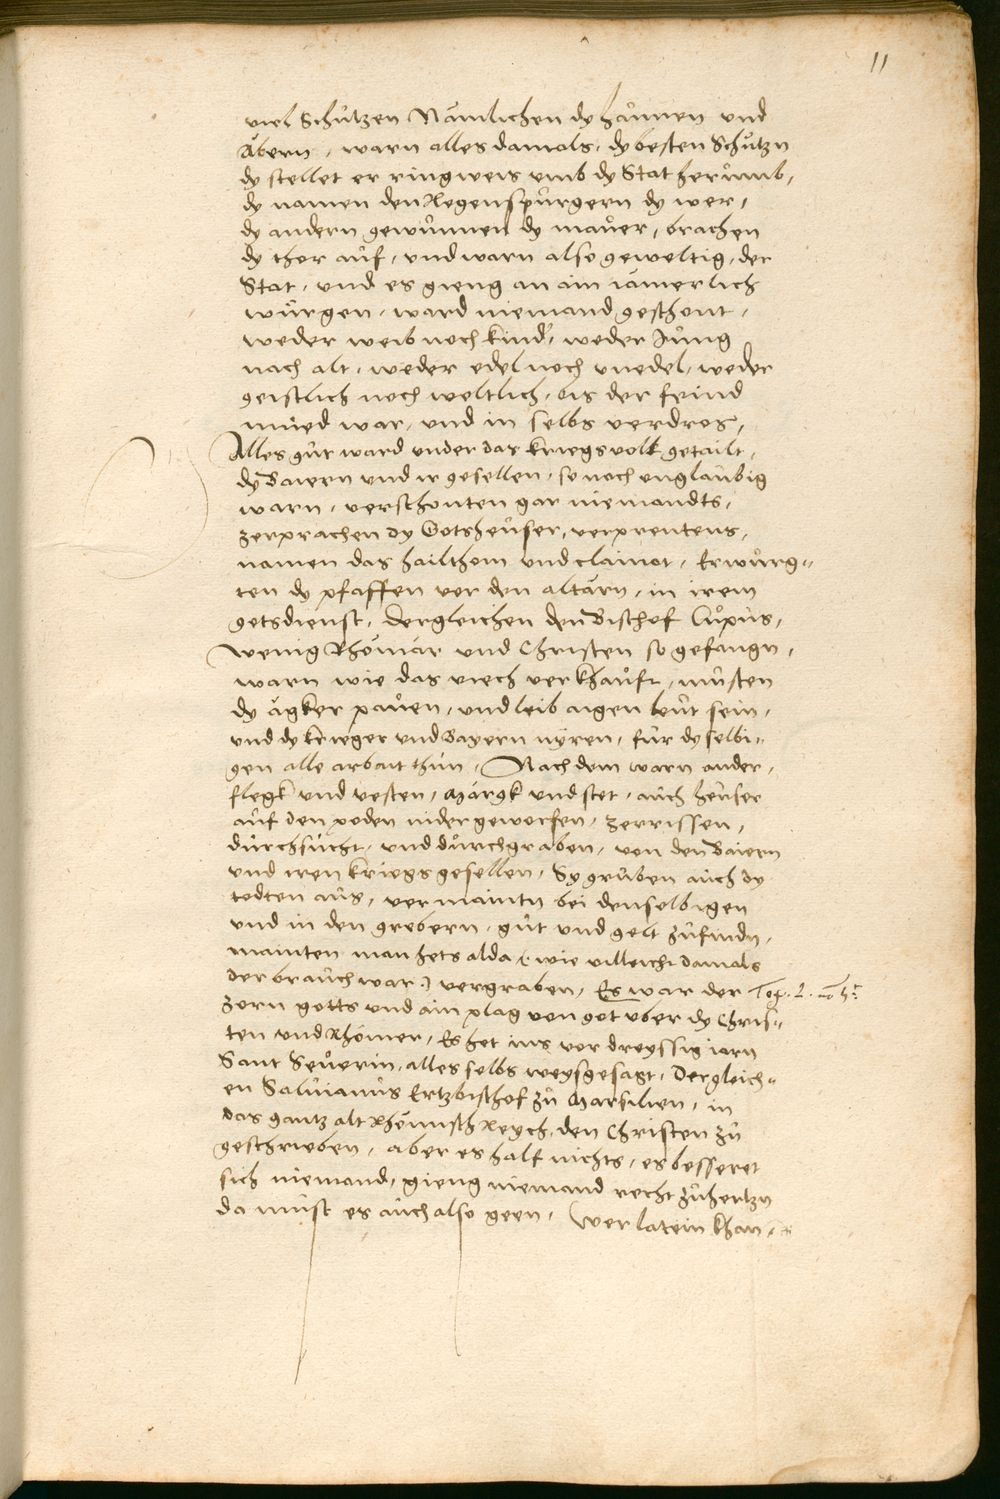 11
viel Schützen Nämlichen dy haunen und
Abern, warn alles damals, dy besten Schützn
dy stellet er ringweis umb dy Stat herumb,
dy namen den Regenspurgern dy wer,
dy andern gewunnen dy mauer, brachen
dy thor auf, und warn also geweltig, der
Stat, und es gieng an ain iamerlich
würgen, ward niemand geschont,
weder weib noch kind, weder Jung
nach alt, weder edel noch unedel, weder
geistlich noch weltlich, bis der feind
mued war, und in selbs verdros,
Alles gut ward under das kriegsvolk getailt,
dy Baiern und ir gesellen, so noch unglaubig
warn, verschonten gar niemandts,
zerprachen dy Gotsheuser, verprentens,
namen das hailthom und clainot, Erwurg-
ten dy pfaffen vor den altärn, in irem
gotsdienst, dergleichen den Bischof Lupus,
wenig Rhömär und Christen so gefangn,
warn wie das viech verkhauft, musten
dy ägker pauen, und leib aigen leut sein,
und dy krieger und Bayern nyren, für dyselbi-
gen alle arbait thun, Nach dem warn ander,
flegk und vesten, Märgk und stet, auch heuser
auf den poden nider geworfen, zerrissen,
durchsucht, und durchgraben, von den Baiern
und iren kriegs gesellen, Sy gruben auch dy
todten aus, vermaintn bei denselbigen
und in den grebern, gut und gelt zufindn,
mainten man hets alda (: wie villeicht damals
der brauch war:) vergraben, Es war der
zorn gotts und ain plag von got uber dy Chris-
ten und Rhömer, Es het ins vor dreyssig iarn
Sant Seuerin, alles selbs weysgesagt, Dergleich-
en Saluianus Ertzbischof zu Marsilien, in
das gantz alt Rhömisch Reych, den Christen zu
geschrieben, aber es half nichts, es besseret
sich niemand, gieng niemand recht zuhertzn
da must es auch also geen, Wer latein khan,